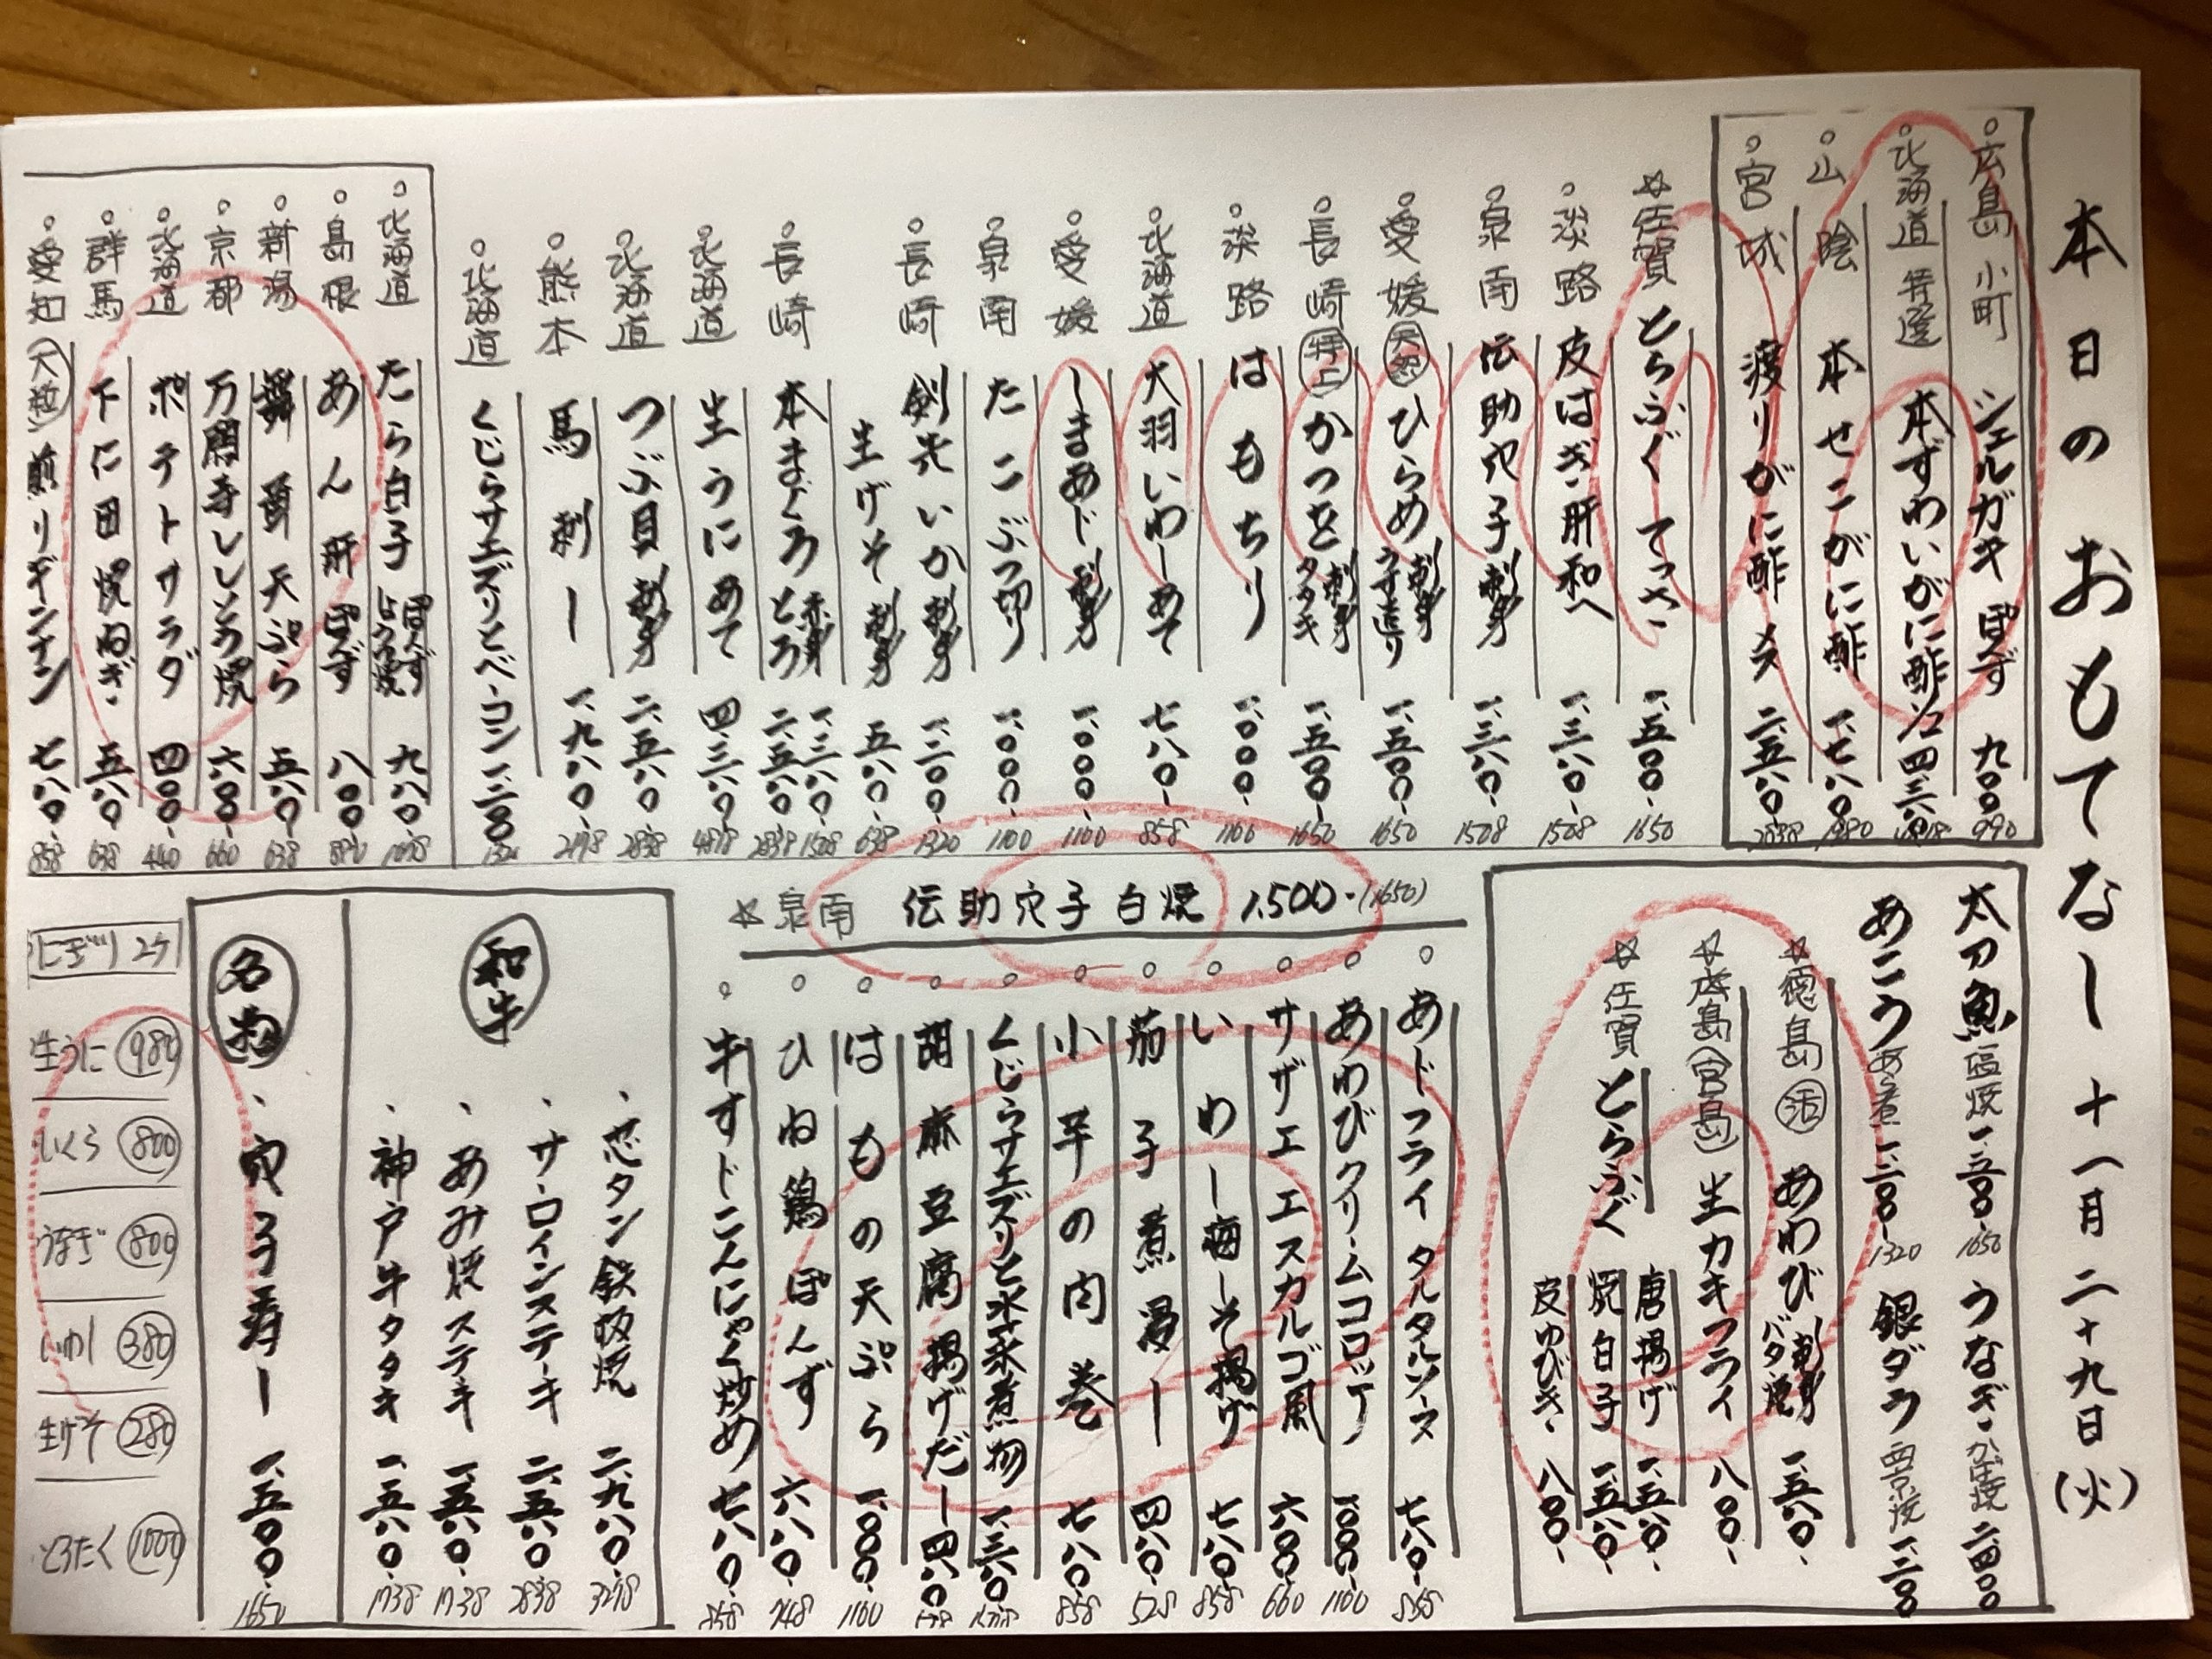 本日のおもてなし 十一月二十九日(火)
広島 小町 シェルガキ ぽんず 九〇〇- 990
北海道 特選 本ずわいがに酢 四、三八〇
山陰 本せこがに酢 一、七八〇- 1980
宮城 渡りがに酢 メス 二、五八〇- 2838
☆佐賀 とらふぐ てっさ 一、五〇〇- 1650
淡路 皮はぎ肝和へ 一、三八〇- 1508
泉南 伝助穴子 刺身 一、三八〇- 1508
愛媛 天然 ひらめ 刺身 うす造り 一、五〇〇- 1650
長崎 特上 かつを 刺身 タタキ 一、五〇〇- 1650
淡路 はもちり 一、〇〇〇- 1100
北海道 大羽いわしあて 七八〇- 858
愛媛 しまあじ 刺身 一、〇〇〇- 1100
泉南 たこぶつ切り 一、〇〇〇- 1100
長崎 剣先いか 刺身 一、二〇〇- 1320
生げそ 刺身 五八〇- 638
長崎 本まぐろ 赤身 一、三八〇- 1508
とろ 二、五八〇- 2838
北海道 生うにあて 四、三八〇- 4818
北海道 つぶ貝 刺身 二、五八〇- 2838
熊本 馬刺し 一、九八〇- 2178
北海道 くじらサエズリとベーコン 一、二〇〇 1320
北海道 たら白子 ぽんず しょうゆ焼 九八〇- 1078
島根 あん肝 ぽんず 八〇〇- 880
新潟 舞茸天ぷら 五八〇- 638
京都 万願寺ししとう焼 六〇〇- 660
北海道 ポテトサラダ 四〇〇- 440
群馬 下仁田焼ねぎ 五八〇- 638
愛知(大粒)煎りギンナン 七八〇- 858
太刀魚 塩焼 一、五〇〇- 1650 うなぎ かば焼 二、四〇〇
あこう あら煮 一、二〇〇- 1320 銀ダラ 西京焼 一、二〇〇
☆徳島 活 あわび 刺身 バタ焼 一、五八〇-
☆広島(宮島)生カキフライ 八〇〇-
☆佐賀 とらふぐ 唐揚げ 一、五八〇-
焼白子 一、五八〇-
皮ゆびき 八〇〇-
☆泉南 伝助穴子白焼 1,500-(1650)
あじフライ タルタルソース 七八〇- 858
あわびクリームコロッケ 一、〇〇〇- 1100
サザエ エスカルゴ風 六〇〇- 660
いわし梅しそ揚げ 七八〇- 858
茄子煮浸し 四八〇- 528
小芋の肉巻 七八〇- 858
くじらサエズリと水菜煮物 一、三八〇
胡麻豆腐揚げだし 四八〇- 528
はもの天ぷら 一、〇〇〇- 1100
ひね鶏ぽんず 六八〇- 748
牛すじこんにゃく炒め 七八〇- 858
和牛
、芯タン鉄板焼 二、九八〇- 3278
、サーロインステーキ 二、五八〇- 2838
、あみ焼ステーキ 一、五八〇- 1738
、神戸牛タタキ 一、五八〇- 1738
名物
、穴子寿し 一、五〇〇- 1650
にぎり2ケ
生うに 980
いくら 800
うなぎ 800
いわし 380
生げそ 280
とろたく 1000